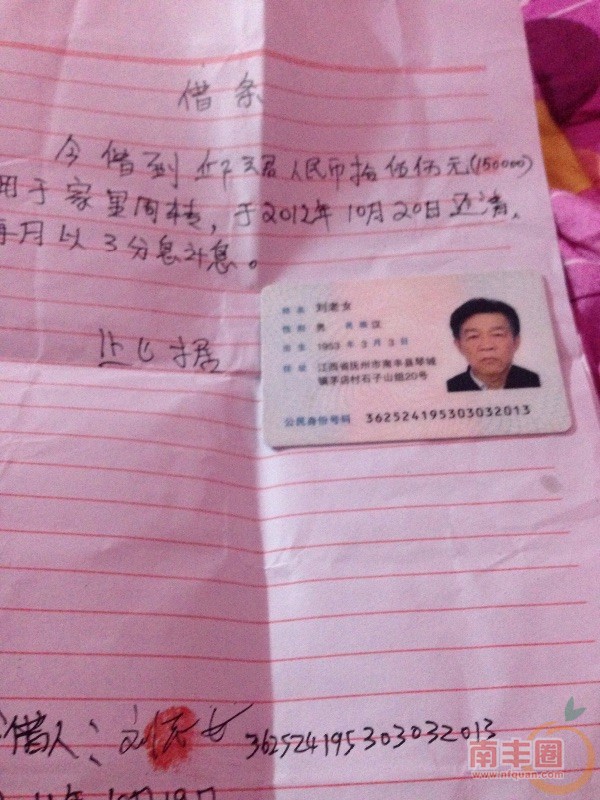 借条
今借到 人民币拾伍万元(150000)
用于家里周转，于2012年10月20日还清，
每月以3分息计息。
据
姓名 刘老女
性别 男 民族 汉
出生 1953年3月3日
住址 江西省抚州市南丰县琴城
镇茅店村石子山组20号
公民身份号码 362524195303032013
借人：刘老女 362524195303032013
年10月19日
南丰圈
www.nfquan.com